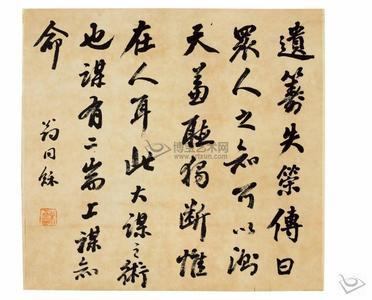 遺籌失策傳曰
眾人之知可以測
天兼聽獨斷惟
在人耳此大謀之術
也謀有二端上謀知
命
翁同龢
博宝艺术网
artxun.com